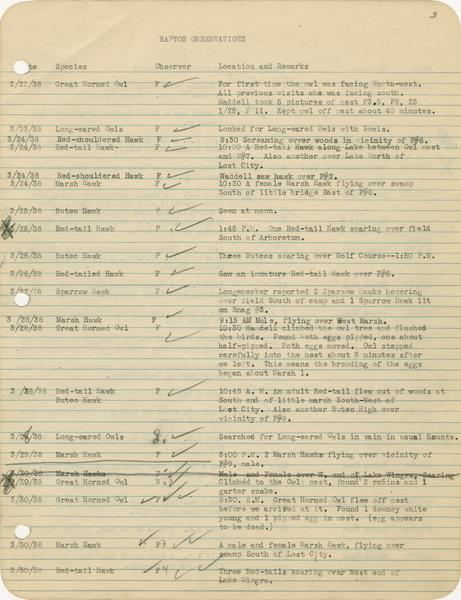 3
RAPTOR OBSERVATIONS
te Species Observer Location and Remarks
3/22/38 Great Horned Owl F For first time the owl was facing North-west.
All previous visits she was facing south.
Waddell took 5 pictures of nest F3.5, F8, 25
1/25, F 11. Kept owl off nest about 40 minutes.
3/23/38 Long-eared Owls F Looked for Long-eared Owls with Sowls.
3/24/38 Red-shouldered Hawk F 9:30 Screaming over woods in vicinity of F#6.
3/24/38 Red-tail Hawk F 10:00 A Red-tail Hawk along Lake between Owl nest
and F#7. Also another over Lake North of
Lost City.
3/24/38 Red-shouldered Hawk F Waddell saw hawk over F#2.
3/24/38 Marsh Hawk F 10:20 A female Marsh Hawk flying over swamp
South of little bridge East of F#6.
3/25/38 Buteo Hawk F Seen at noon.
3/25/38 Red-tail Hawk F 1:45 P.M. One Red-tail Hawk soaring over field
South of Arboretum.
3/25/38 Buteo Hawk F Three Buteos soaring over Golf Course--1:50 P.M.
3/26/38 Red-tailed Hawk F Saw an immature Red-tail Hawk over F#6.
3/27/38 Sparrow Hawk F Longenecker reported 2 Sparrow Hawks hovering
over field South of camp and 1 Sparrow Hawk lit
on Snag #3.
3/28/38 Marsh Hawk F 9:15 AM Male, flying over West Marsh.
3/28/38 Great Horned Owl F 10:30 Waddell climbed the owl tree and flushed
the birds. Found both eggs pipped, one about
half-pipped. Both eggs moved. Owl stepped
carefully into the nest about 5 minutes after
we left. This means the brooding of the eggs
began about March 1.
3/28/38 Red-tail Hawk F 10:45 A. M. An adult Red-tail flew out of woods at
Buteo Hawk South end of little marsh South-West of
Lost City. Also another Buteo High over
vicinity of F#9.
3/29/38 Long-eared Owls Searched for Long-eared Owls in vain in usual Haunts.
3/29/38 Marsh Hawk F 3:00 P.M. 2 Marsh Hawks flying over vicinity of
F#9, male.
3/30/38 Marsh Hawks F Male and Female over W. end of Lake Wingra, Soaring
3/30/38 Great Horned Owl Climbed to the Owls nest, found 2 robins and 1
garter snake.
3/30/38 Great Horned Owl F 9:30, A.M. Great Horned Owl flew off nest
before we arrived at it. Found 1 downey white
young and 1 pipped egg in nest. (egg appears
to be dead.)
3/30/38 Marsh Hawk F3 A male and female Marsh Hawk, flying over
swamp South of Lost City.
3/30/38 Red-tail Hawk F4 Three Red-tails soaring over West end of
Lake Wingra.